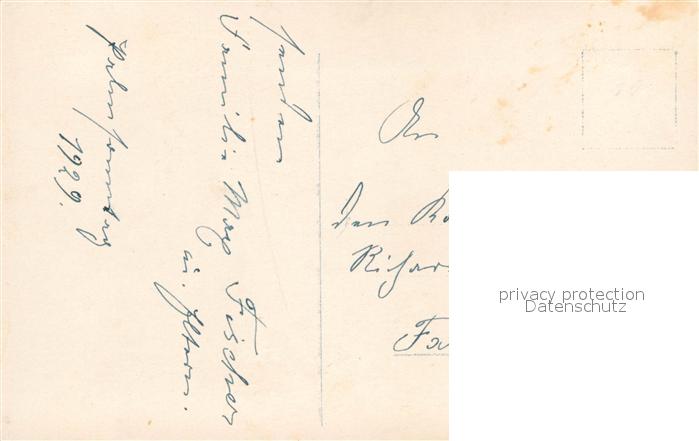 senden
Familie Max Fischer
u. Eltern.
Palmsonntag
1929.
An
Den
Richar
Fa
privacy protection
Datenschutz